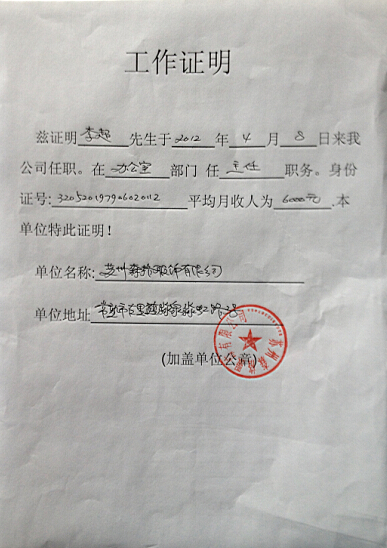 工作证明
兹证明李超先生于2012年4月8日来我
公司任职。在办公室部门 任主任职务。身份
证号:320520197906020112平均月收入为6000元.本
单位特此证明！
单位名称:苏州 服饰有限公司
单位地址
(加盖单位公章)